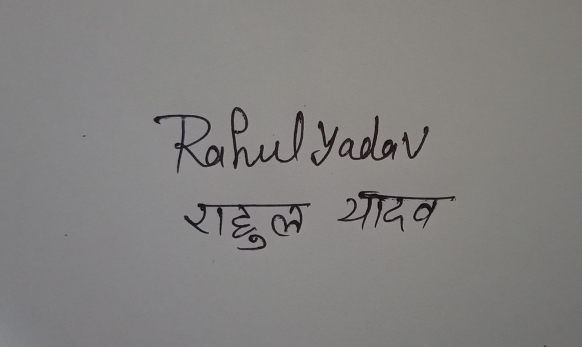 Rahul Yadav
राहुल यादव